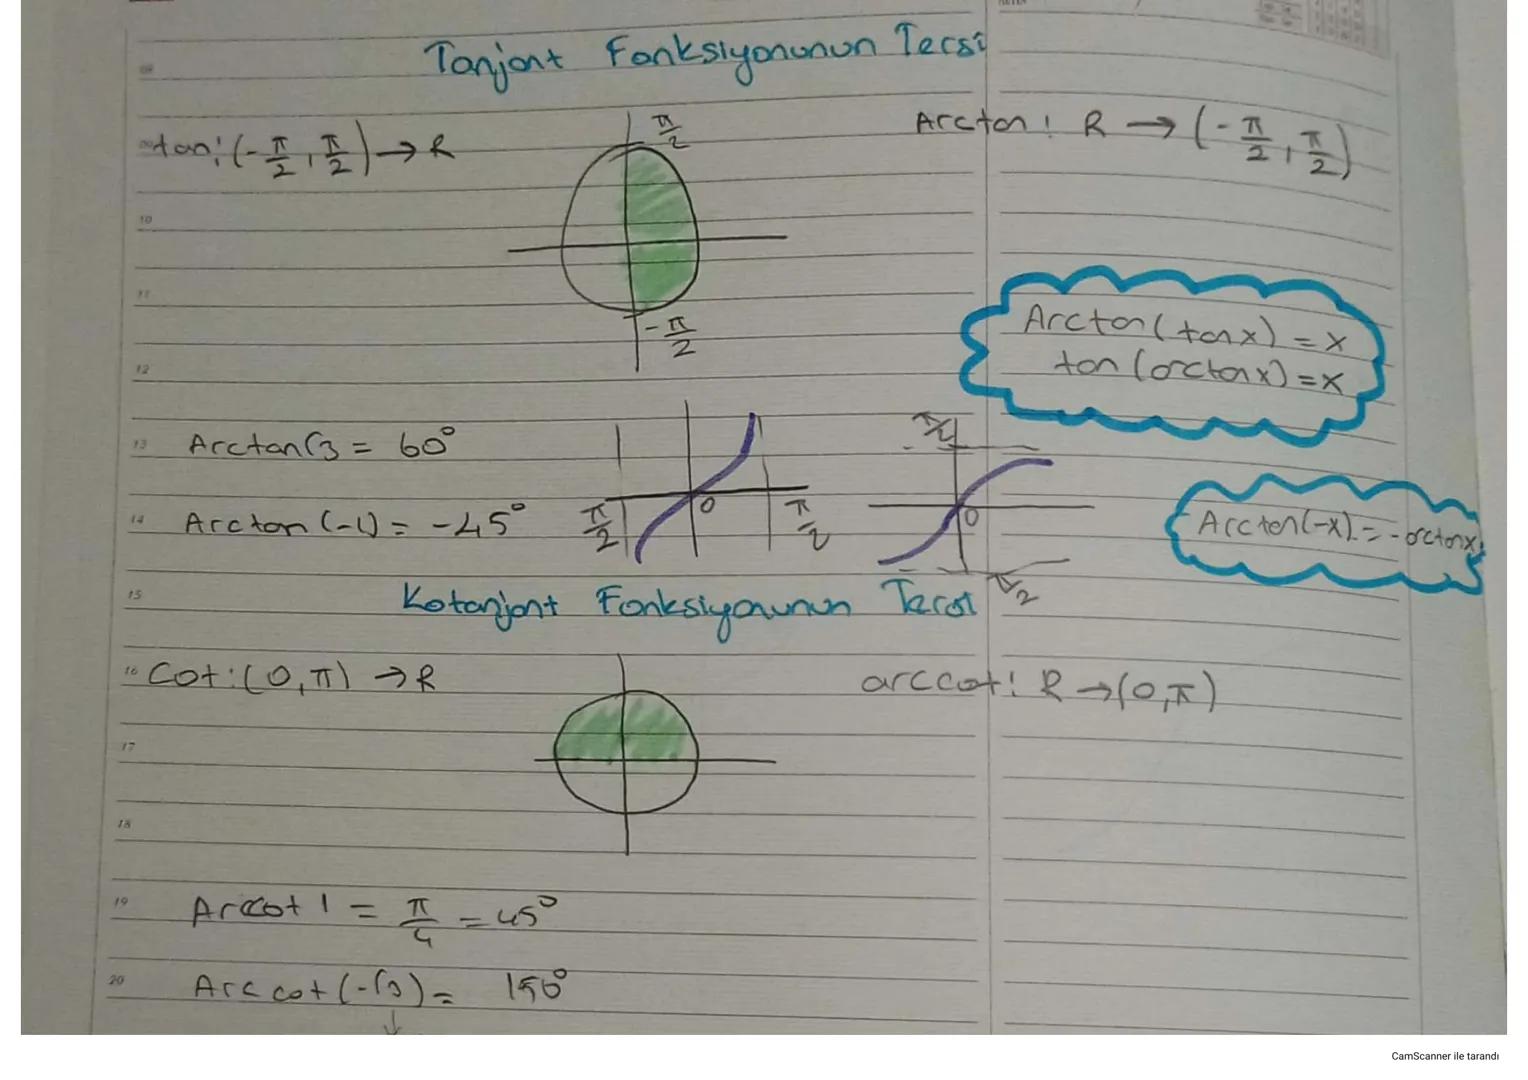 Tanjant Fonksiyonunun Tersi
tan: (-π/2, π/2) → R
Arctan: R → (-π/2, π/2)
π/2
-π/2
Arctan(tanx) = x
tan(arctanx) = x
Arctan√3 = 60°
Arctan(-1) = -45°
π/2
0
π/2
π/2
0
π/2
Arctan(-x) = -arctanx
Kotanjant Fonksiyonunun Tersi
Cot: (0,π) → R
arccot: R → (0,π)
Arccot 1 = π/4 = 45°
Arccot(-√3) = 150°
09
10
11
12
13
14
15
16
17
18
19
20
CamScanner ile tarandı